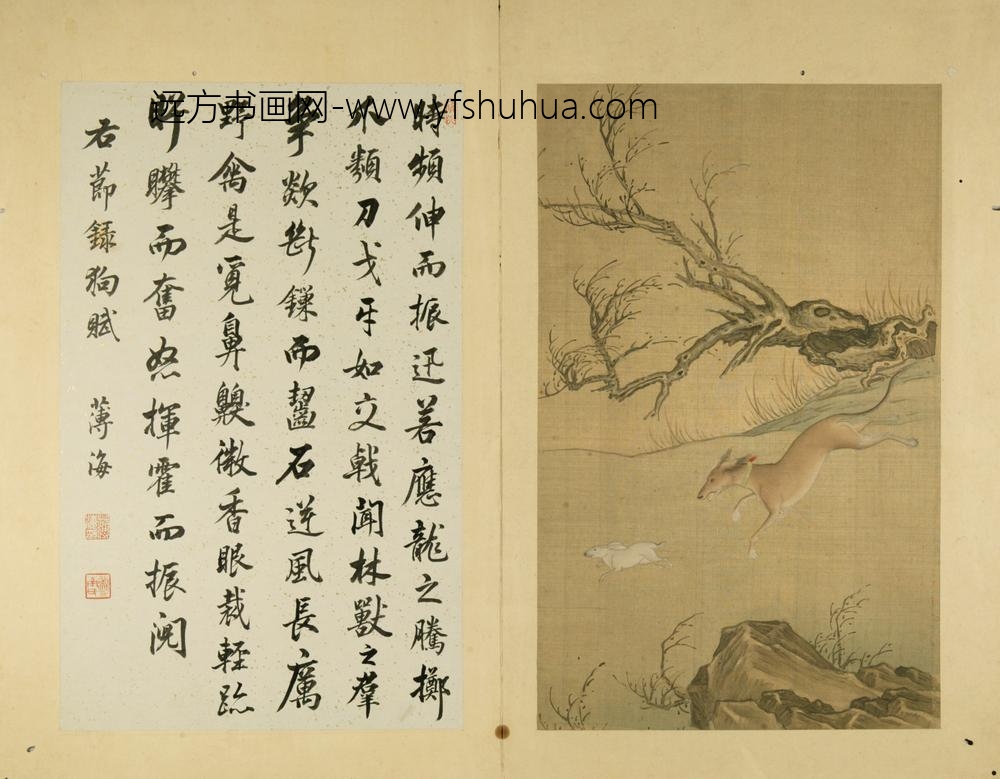 远方书画网-www.yfshuhua.com
時頻伸而振迅若應龍之騰擲
爪類刀戈牙如交戟聞林獸之羣
擊欻斷鏁而齧石逆風長厲
野禽是覓鼻齅微香眼裁輕跡
瞬矆而奮怒揮霍而振
右節錄狗賦 薄海